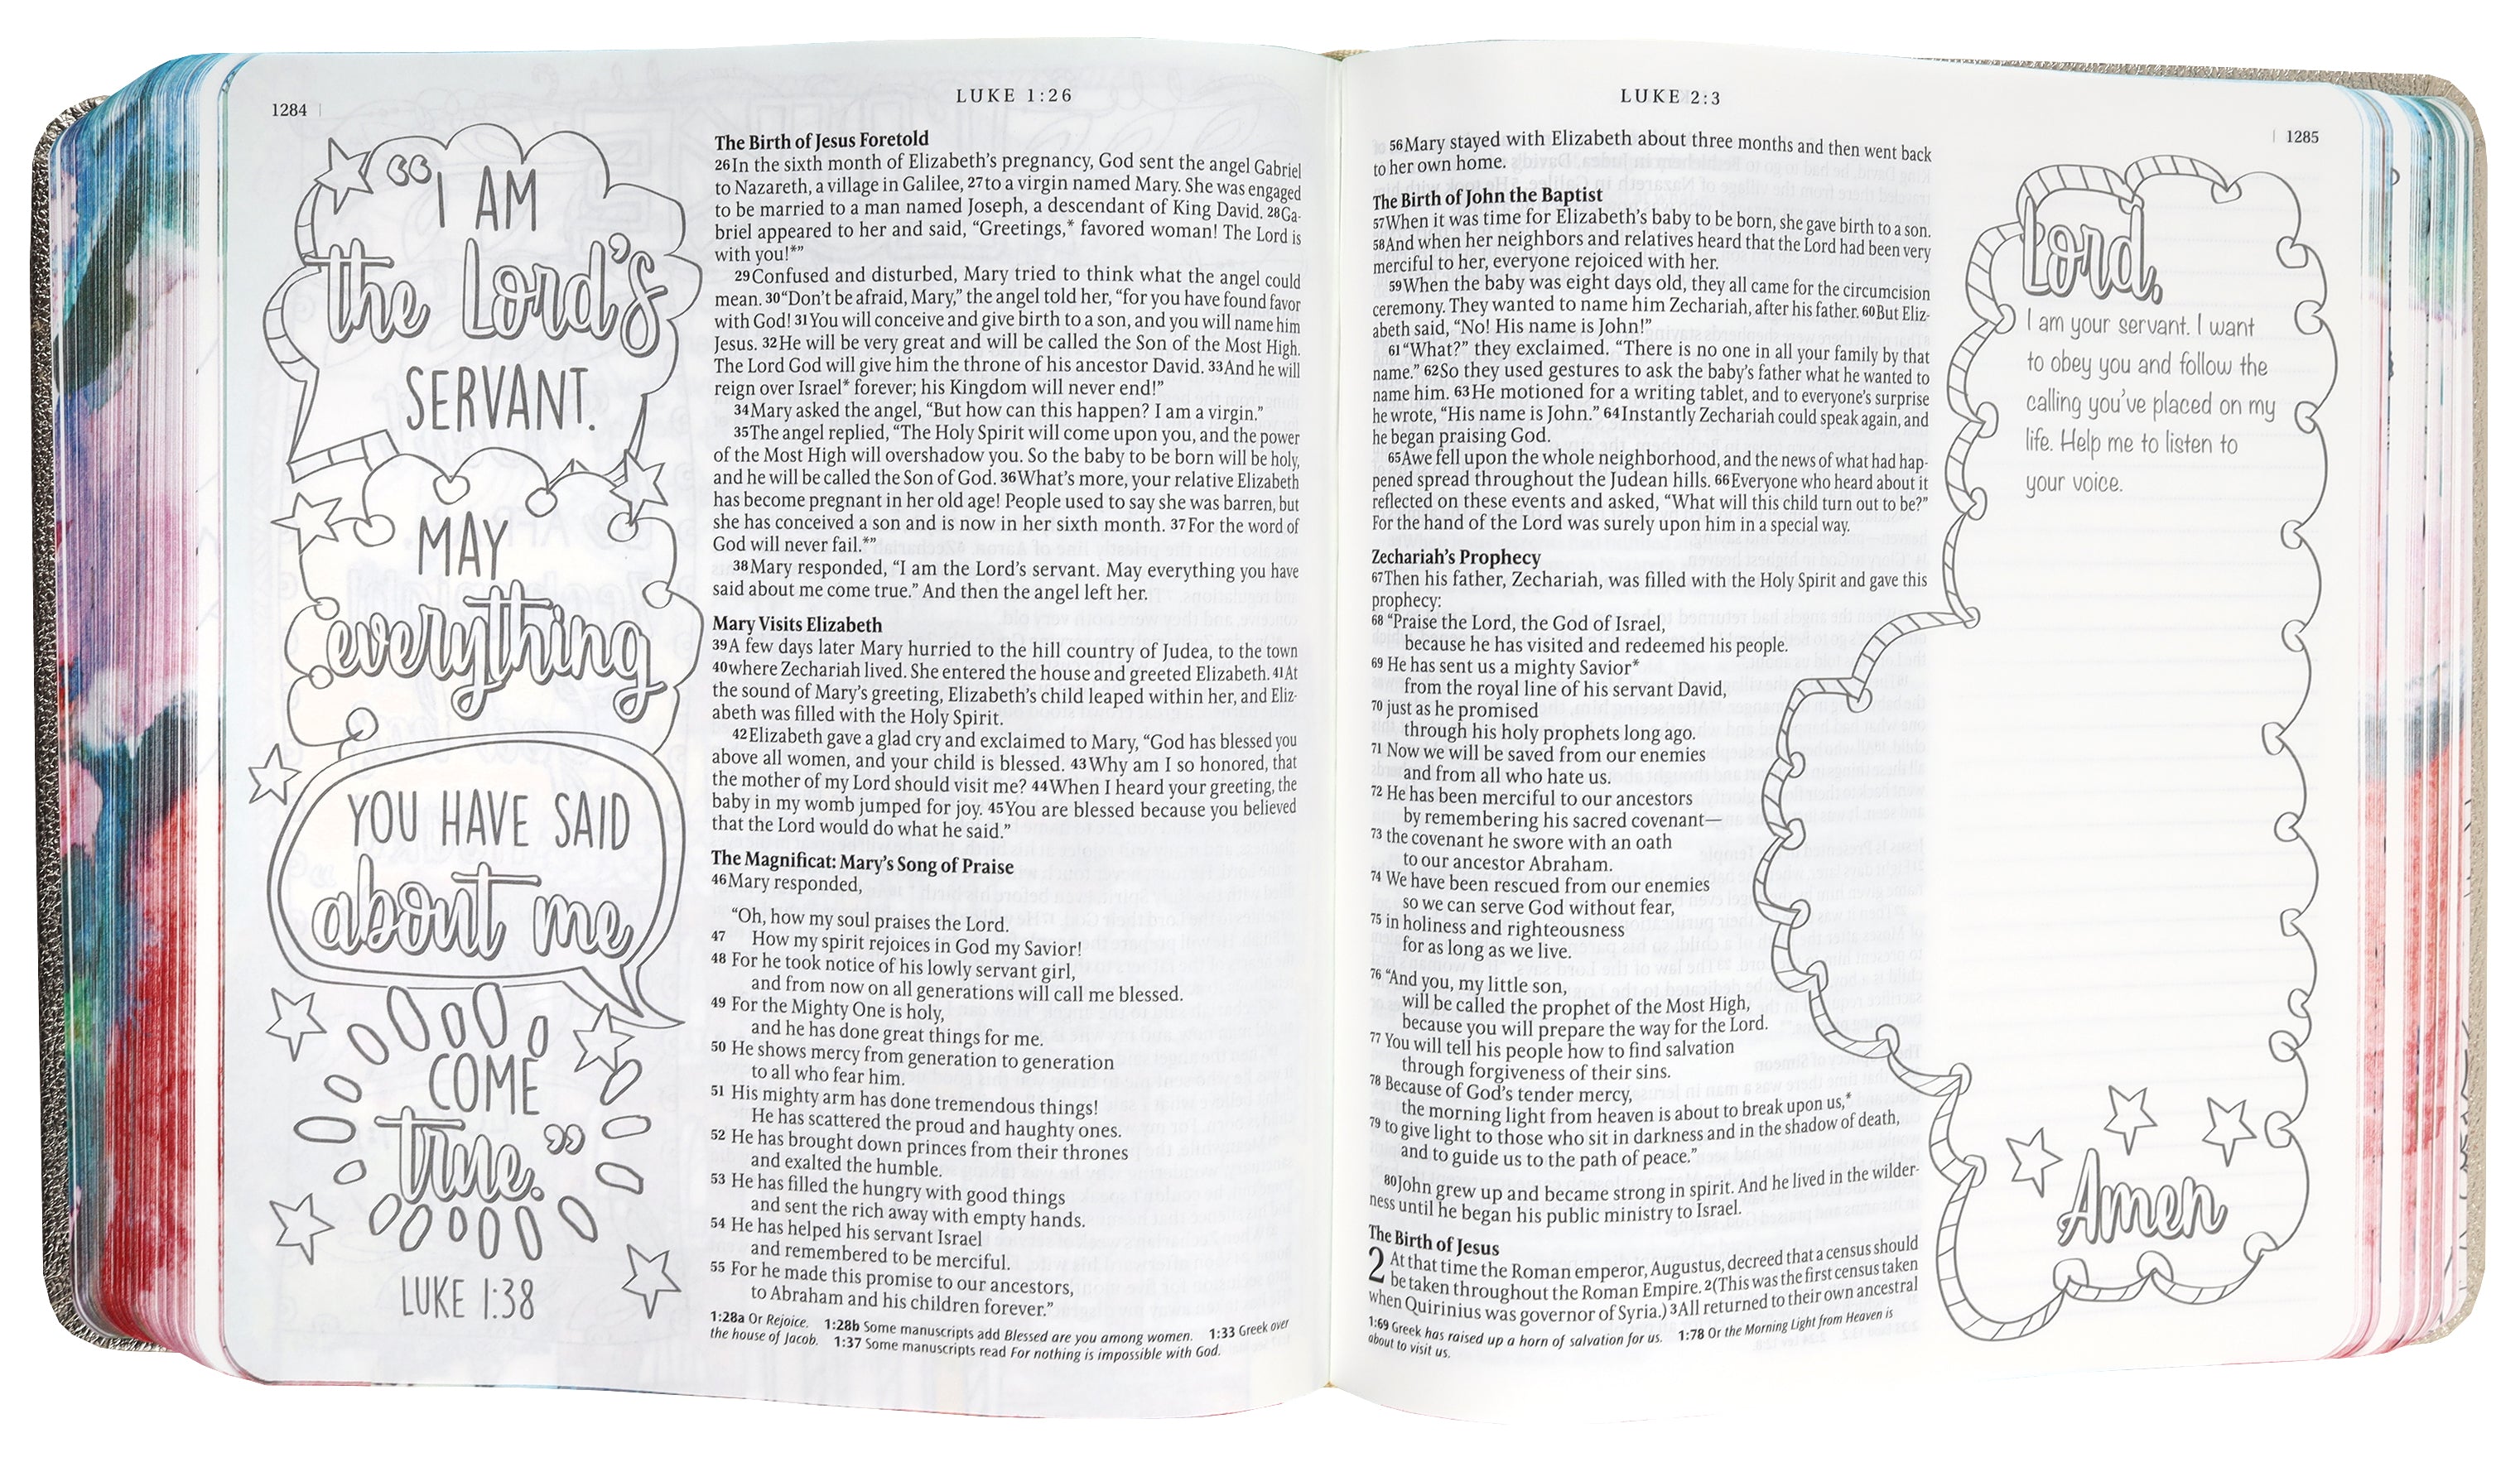 1284 |
LUKE 1:26
“I AM
the Lord’s
SERVANT.
MAY
everything
YOU HAVE SAID
about me
COME
true.”
LUKE 1:38
The Birth of Jesus Foretold
26In the sixth month of Elizabeth’s pregnancy, God sent the angel Gabriel
to Nazareth, a village in Galilee, 27to a virgin named Mary. She was engaged
to be married to a man named Joseph, a descendant of King David. 28Ga-
briel appeared to her and said, “Greetings,* favored woman! The Lord is
with you!*”
29Confused and disturbed, Mary tried to think what the angel could
mean. 30“Don’t be afraid, Mary,” the angel told her, “for you have found favor
with God! 31You will conceive and give birth to a son, and you will name him
Jesus. 32He will be very great and will be called the Son of the Most High.
The Lord God will give him the throne of his ancestor David. 33And he will
reign over Israel* forever; his Kingdom will never end!”
34Mary asked the angel, “But how can this happen? I am a virgin.”
35The angel replied, “The Holy Spirit will come upon you, and the power
of the Most High will overshadow you. So the baby to be born will be holy,
and he will be called the Son of God. 36What’s more, your relative Elizabeth
has become pregnant in her old age! People used to say she was barren, but
she has conceived a son and is now in her sixth month. 37For the word of
God will never fail.*”
38Mary responded, “I am the Lord’s servant. May everything you have
said about me come true.” And then the angel left her.
Mary Visits Elizabeth
39A few days later Mary hurried to the hill country of Judea, to the town
40where Zechariah lived. She entered the house and greeted Elizabeth. 41At
the sound of Mary’s greeting, Elizabeth’s child leaped within her, and Eliz-
abeth was filled with the Holy Spirit.
42Elizabeth gave a glad cry and exclaimed to Mary, “God has blessed you
above all women, and your child is blessed. 43Why am I so honored, that
the mother of my Lord should visit me? 44When I heard your greeting, the
baby in my womb jumped for joy. 45You are blessed because you believed
that the Lord would do what he said.”
The Magnificat: Mary’s Song of Praise
46Mary responded,
“Oh, how my soul praises the Lord.
47 How my spirit rejoices in God my Savior!
48 For he took notice of his lowly servant girl,
and from now on all generations will call me blessed.
49 For the Mighty One is holy,
and he has done great things for me.
50 He shows mercy from generation to generation
to all who fear him.
51 His mighty arm has done tremendous things!
He has scattered the proud and haughty ones.
52 He has brought down princes from their thrones
and exalted the humble.
53 He has filled the hungry with good things
and sent the rich away with empty hands.
54 He has helped his servant Israel
and remembered to be merciful.
55 For he made this promise to our ancestors,
to Abraham and his children forever.”
1:28a Or Rejoice. 1:28b Some manuscripts add Blessed are you among women. 1:33 Greek over
the house of Jacob. 1:37 Some manuscripts read For nothing is impossible with God.
LUKE 2:3
| 1285
56Mary stayed with Elizabeth about three months and then went back
to her own home.
The Birth of John the Baptist
57When it was time for Elizabeth’s baby to be born, she gave birth to a son.
58And when her neighbors and relatives heard that the Lord had been very
merciful to her, everyone rejoiced with her.
59When the baby was eight days old, they all came for the circumcision
ceremony. They wanted to name him Zechariah, after his father. 60But Eliz-
abeth said, “No! His name is John!”
61“What?” they exclaimed. “There is no one in all your family by that
name.” 62So they used gestures to ask the baby’s father what he wanted to
name him. 63He motioned for a writing tablet, and to everyone’s surprise
he wrote, “His name is John.” 64Instantly Zechariah could speak again, and
he began praising God.
65Awe fell upon the whole neighborhood, and the news of what had hap-
pened spread throughout the Judean hills. 66Everyone who heard about it
reflected on these events and asked, “What will this child turn out to be?”
For the hand of the Lord was surely upon him in a special way.
Zechariah’s Prophecy
67Then his father, Zechariah, was filled with the Holy Spirit and gave this
prophecy:
68 “Praise the Lord, the God of Israel,
because he has visited and redeemed his people.
69 He has sent us a mighty Savior*
from the royal line of his servant David,
70 just as he promised
through his holy prophets long ago.
71 Now we will be saved from our enemies
and from all who hate us.
72 He has been merciful to our ancestors
by remembering his sacred covenant—
73 the covenant he swore with an oath
to our ancestor Abraham.
74 We have been rescued from our enemies
so we can serve God without fear,
75 in holiness and righteousness
for as long as we live.
76 “And you, my little son,
will be called the prophet of the Most High,
because you will prepare the way for the Lord.
77 You will tell his people how to find salvation
through forgiveness of their sins.
78 Because of God’s tender mercy,
the morning light from heaven is about to break upon us,*
79 to give light to those who sit in darkness and in the shadow of death,
and to guide us to the path of peace.”
80John grew up and became strong in spirit. And he lived in the wilder-
ness until he began his public ministry to Israel.
The Birth of Jesus
2 At that time the Roman emperor, Augustus, decreed that a census should
be taken throughout the Roman Empire. 2(This was the first census taken
when Quirinius was governor of Syria.) 3All returned to their own ancestral
1:69 Greek has raised up a horn of salvation for us. 1:78 Or the Morning Light from Heaven is
about to visit us.
Lord,
I am your servant. I want
to obey you and follow the
calling you’ve placed on my
life. Help me to listen to
your voice.
Amen